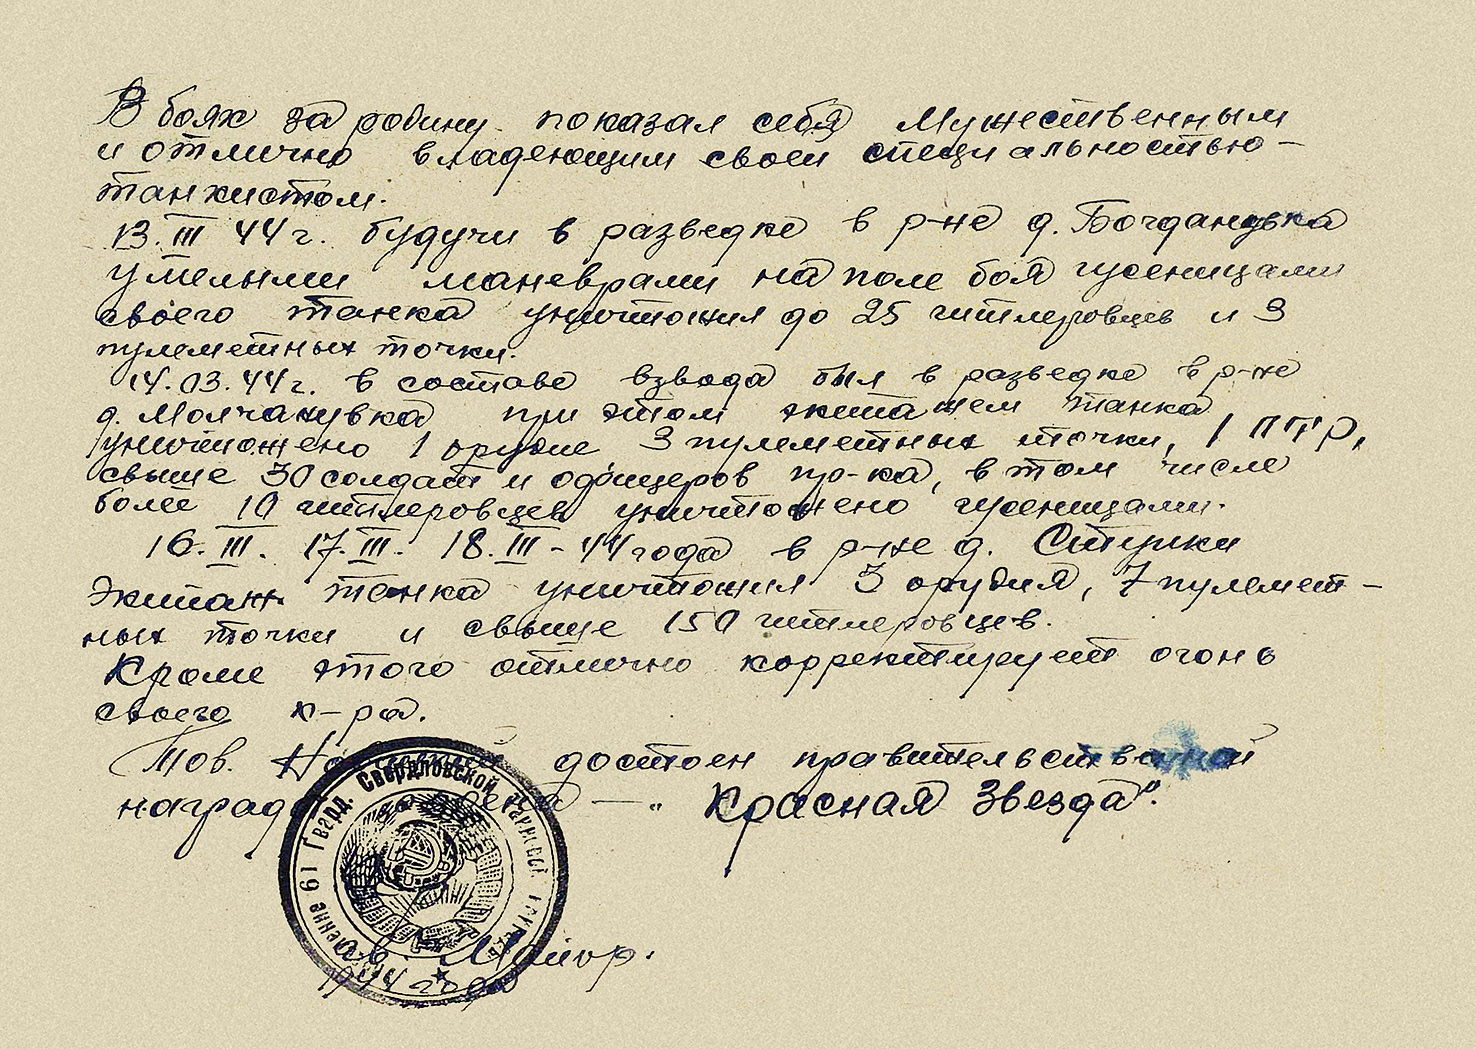 В боях за родину показал себя мужественным
и отлично владеющим своей специальностью –
танкистом.
13.III 44 г. будучи в разведке в р-не д. Богдановка
умелыми маневрами на поле боя гусеницами
своего танка уничтожил до 25 гитлеровцев и 3
пулеметных точки.
14.03.44 г. в составе взвода был в разведке в р-не
д. Молчановка при этом экипажем танка
уничтожено 1 орудие 3 пулеметных точки, 1 ПТР,
свыше 30 солдат и офицеров пр-ка, в том числе
более 10 гитлеровцев уничтожено гусеницами.
16.III. 17.III. 18.III – 44 года в р-не д. Ступки
Экипаж танка уничтожил 3 орудия, 7 пулемет-
ных точки и свыше 150 гитлеровцев.
Кроме этого отлично корректирует огонь
своего к-ра.
Тов. достоен правительственной
ордена – „Красная Звезда".
61 Гвард. Свердловской
гв. Майор.
1944 года